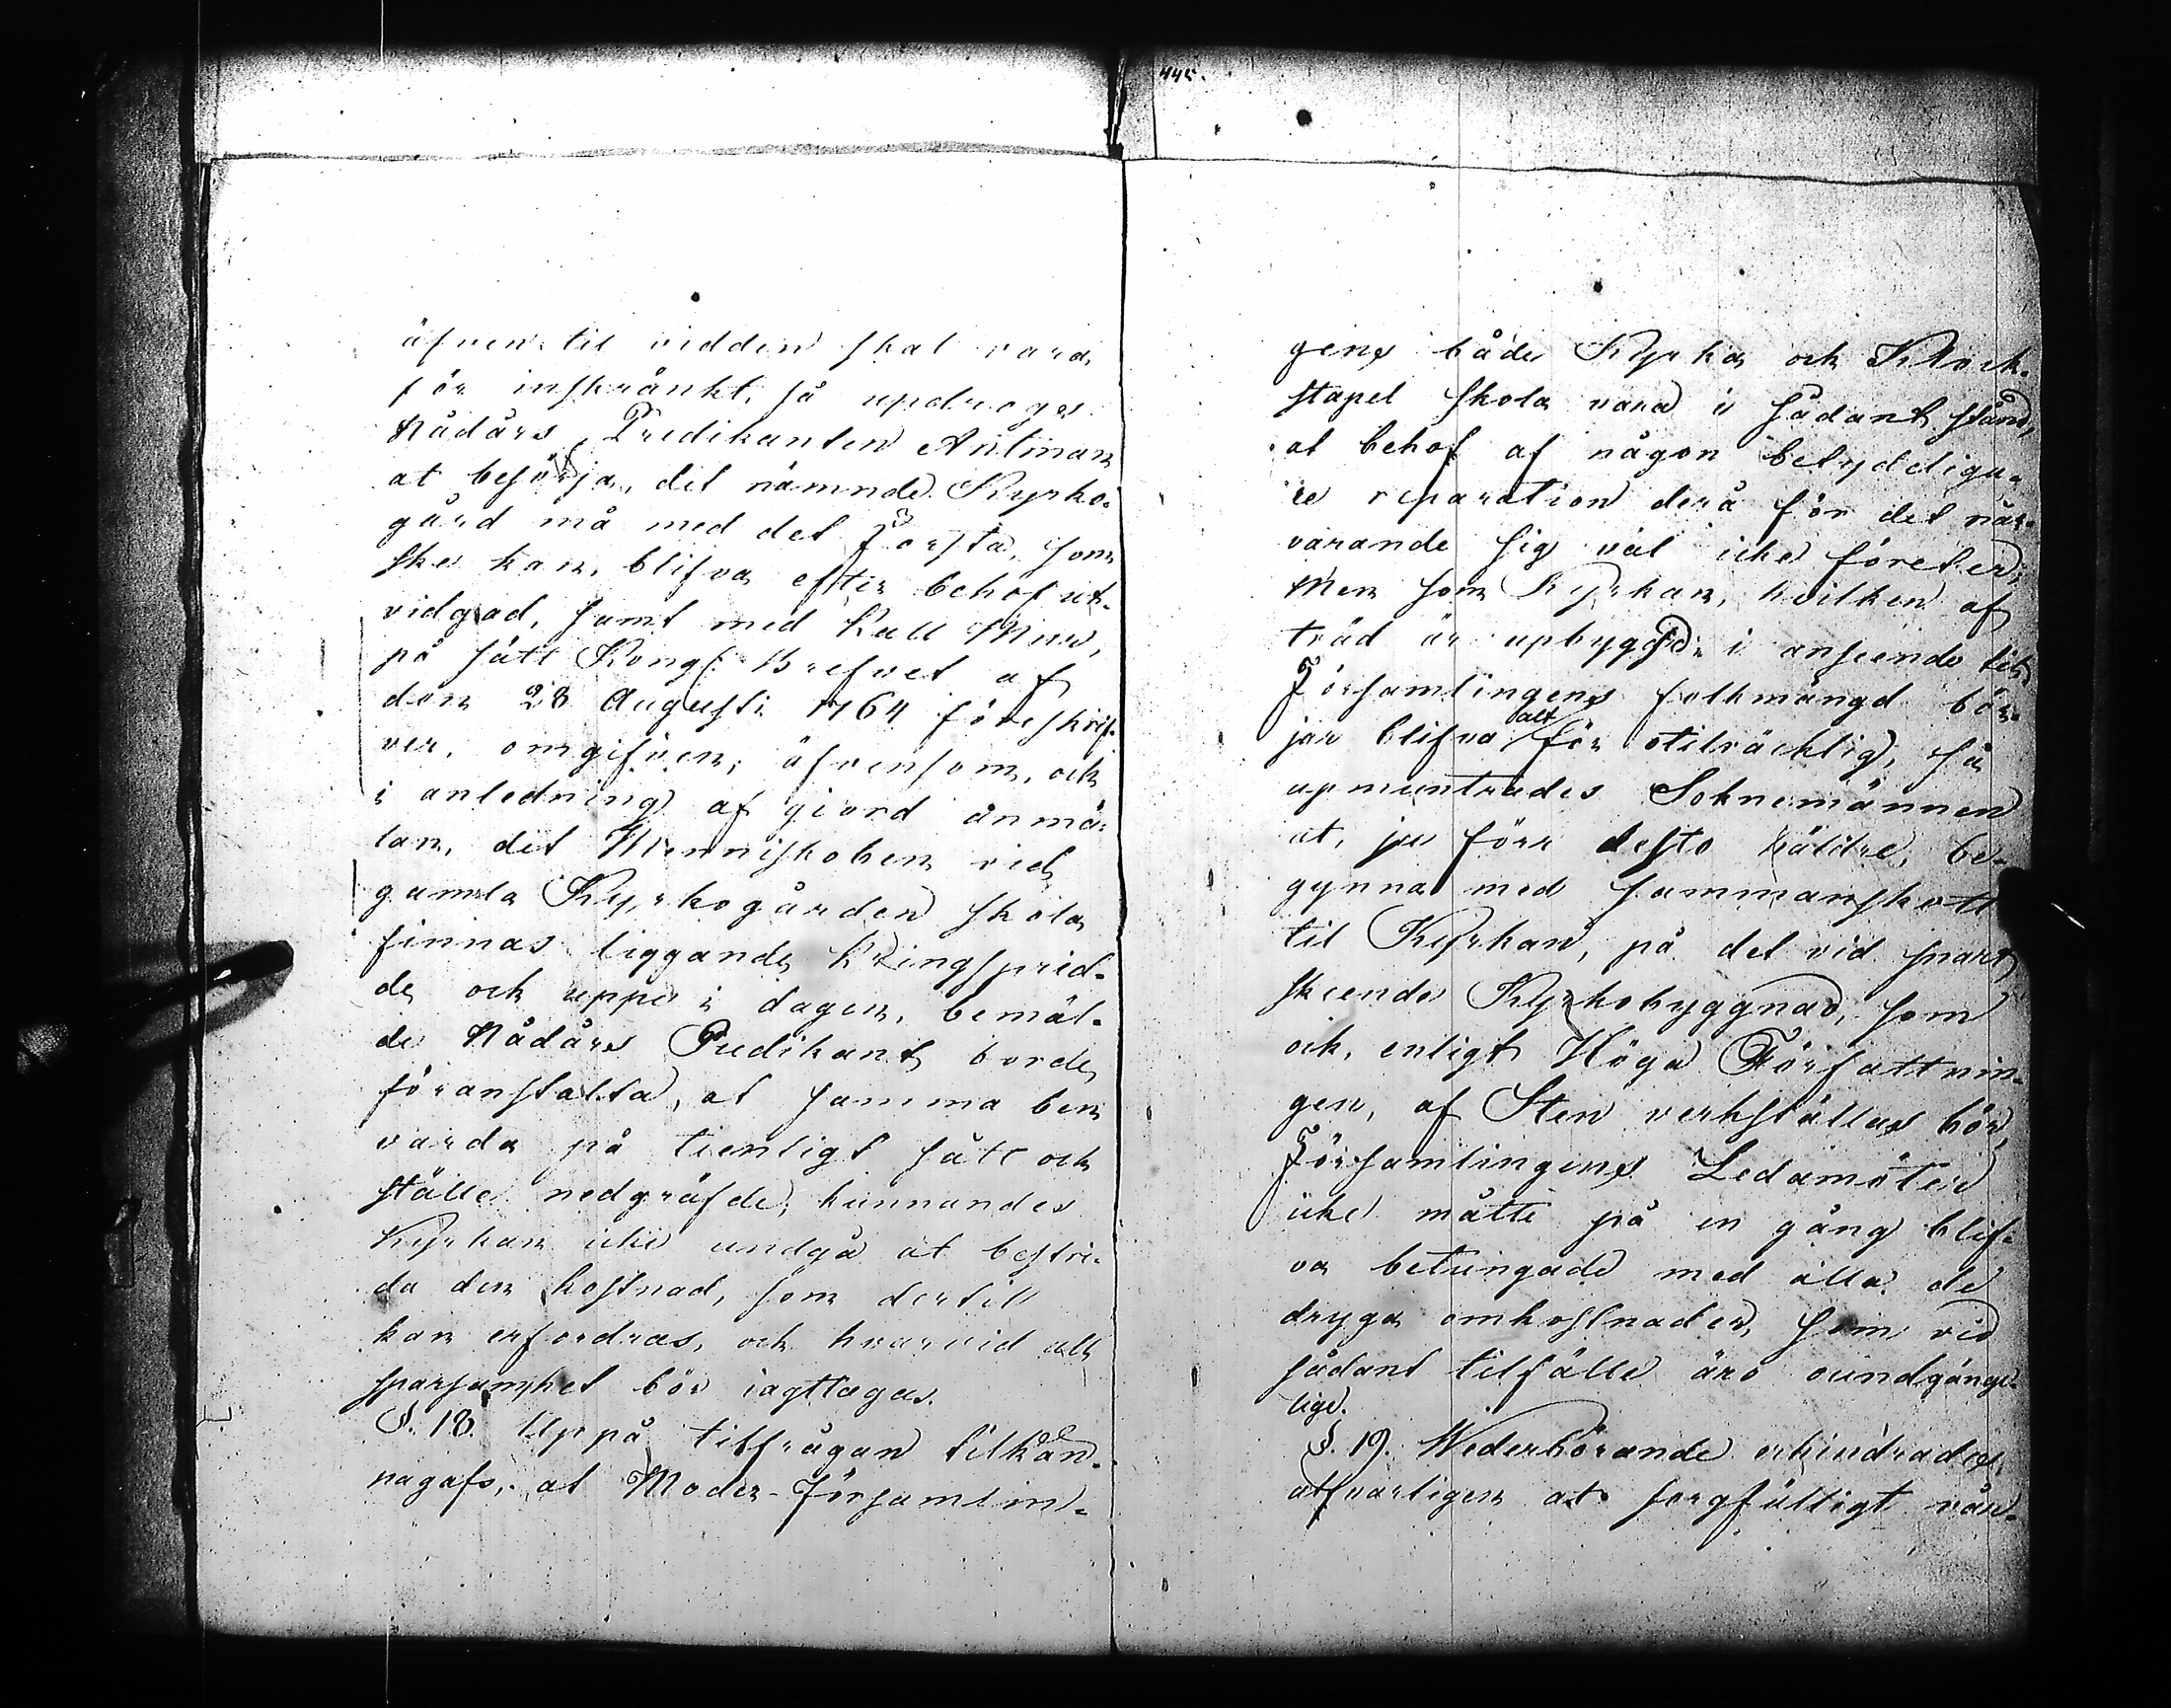 äfven til vidden skal vara
för inskränkt, så updroges
Nådårs Predikanten Antman
at besörja, det nämnde Kyrko-
gård må med det första, som
ske kan, blifva efter behof ut-
vidgad, samt med Kall Mur,
på sätt Kongl. Brefvet af
den 28 Augusti 1764 föreskrif-
ver, omgifven; äfvensom, och
i anledning af giord anmä-
lan, det Menniskoben vid
gamla Kyrkogården skola
finnas liggande kringsprid-
de och uppe i dagen, bemäl-
de Nådårs Predikant borde
föranstalta, at samma ben
varda på tienligt sätt och
ställe nedgräfde, kunnandes
Kyrkan icke undgå at bestri-
da den kostnad, som dertill
kan erfordras, och hvarvid all
sparsamhet bör iagttagas.
§. 18. Uppå tillfrågan tilkän-
nagafs, at Moder-Församlin-
445.
gens både Kyrka och Klock-
stapel skola vara i sådant stånd,
at behof af någon betydliga-
re reparation derå för det när-
varande sig väl icke företer;
Men som Kyrkan, hvilken af
träd är upbygd, i anseende til
Församlingens folkmängd bör-
jar blifva alt för otilräcklig, så
upmuntrades Soknemännen
at, ju förr desto häldre, be-
gynna med sammanskott
til Kyrkan, på det vid snart
skeende Kyrkobyggnad, som
ock, enligt Höga Författnin-
gen, af Sten verkställas bör,
Församlingens Ledamöter
icke måtte på en gång blif-
va betungade med alla de
dryga omkostnader, som vid
sådant tilfälle äro oundgänge-
lige.
§. 19. Wederbörande erhindrades
alfvarligen at sorgfälligt vår-